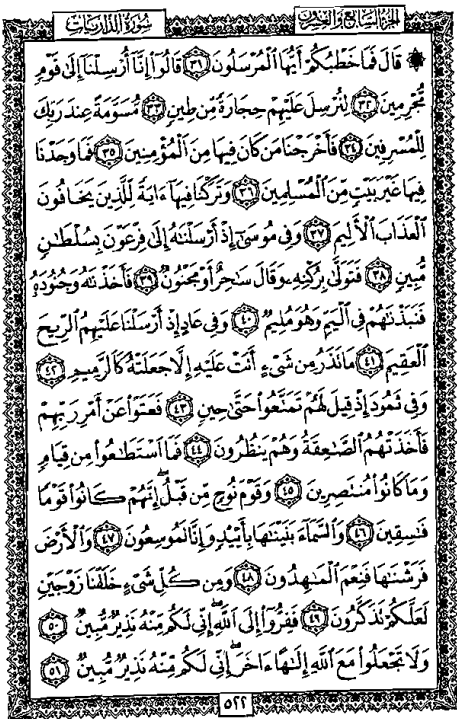 الجزء السابع والعشرون سورة الذاريات
۞ قَالَ فَمَا خَطْبُكُمْ أَيُّهَا ٱلْمُرْسَلُونَ ٣١ قَالُوٓا۟ إِنَّآ أُرْسِلْنَآ إِلَىٰ قَوْمٍ
مُّجْرِمِينَ ٣٢ لِنُرْسِلَ عَلَيْهِمْ حِجَارَةً مِّن طِينٍ ٣٣ مُّسَوَّمَةً عِندَ رَبِّكَ
لِلْمُسْرِفِينَ ٣٤ فَأَخْرَجْنَا مَن كَانَ فِيهَا مِنَ ٱلْمُؤْمِنِينَ ٣٥ فَمَا وَجَدْنَا
فِيهَا غَيْرَ بَيْتٍ مِّنَ ٱلْمُسْلِمِينَ ٣٦ وَتَرَكْنَا فِيهَآ ءَايَةً لِّلَّذِينَ يَخَافُونَ
ٱلْعَذَابَ ٱلْأَلِيمَ ٣٧ وَفِى مُوسَىٰٓ إِذْ أَرْسَلْنَٰهُ إِلَىٰ فِرْعَوْنَ بِسُلْطَٰنٍ
مُّبِينٍ ٣٨ فَتَوَلَّىٰ بِرُكْنِهِۦ وَقَالَ سَٰحِرٌ أَوْ مَجْنُونٌ ٣٩ فَأَخَذْنَٰهُ وَجُنُودَهُۥ
فَنَبَذْنَٰهُمْ فِى ٱلْيَمِّ وَهُوَ مُلِيمٌ ٤٠ وَفِى عَادٍ إِذْ أَرْسَلْنَا عَلَيْهِمُ ٱلرِّيحَ
ٱلْعَقِيمَ ٤١ مَا تَذَرُ مِن شَىْءٍ أَتَتْ عَلَيْهِ إِلَّا جَعَلَتْهُ كَٱلرَّمِيمِ ٤٢
وَفِى ثَمُودَ إِذْ قِيلَ لَهُمْ تَمَتَّعُوا۟ حَتَّىٰ حِينٍ ٤٣ فَعَتَوْا۟ عَنْ أَمْرِ رَبِّهِمْ
فَأَخَذَتْهُمُ ٱلصَّٰعِقَةُ وَهُمْ يَنظُرُونَ ٤٤ فَمَا ٱسْتَطَٰعُوا۟ مِن قِيَامٍ
وَمَا كَانُوا۟ مُنتَصِرِينَ ٤٥ وَقَوْمَ نُوحٍ مِّن قَبْلُ ۖ إِنَّهُمْ كَانُوا۟ قَوْمًا
فَٰسِقِينَ ٤٦ وَٱلسَّمَآءَ بَنَيْنَٰهَا بِأَيْي۟دٍ وَإِنَّا لَمُوسِعُونَ ٤٧ وَٱلْأَرْضَ
فَرَشْنَٰهَا فَنِعْمَ ٱلْمَٰهِدُونَ ٤٨ وَمِن كُلِّ شَىْءٍ خَلَقْنَا زَوْجَيْنِ
لَعَلَّكُمْ تَذَكَّرُونَ ٤٩ فَفِرُّوٓا۟ إِلَى ٱللَّهِ ۖ إِنِّى لَكُم مِّنْهُ نَذِيرٌ مُّبِينٌ ٥٠
وَلَا تَجْعَلُوا۟ مَعَ ٱللَّهِ إِلَٰهًا ءَاخَرَ ۖ إِنِّى لَكُم مِّنْهُ نَذِيرٌ مُّبِينٌ ٥١
٥٢٢